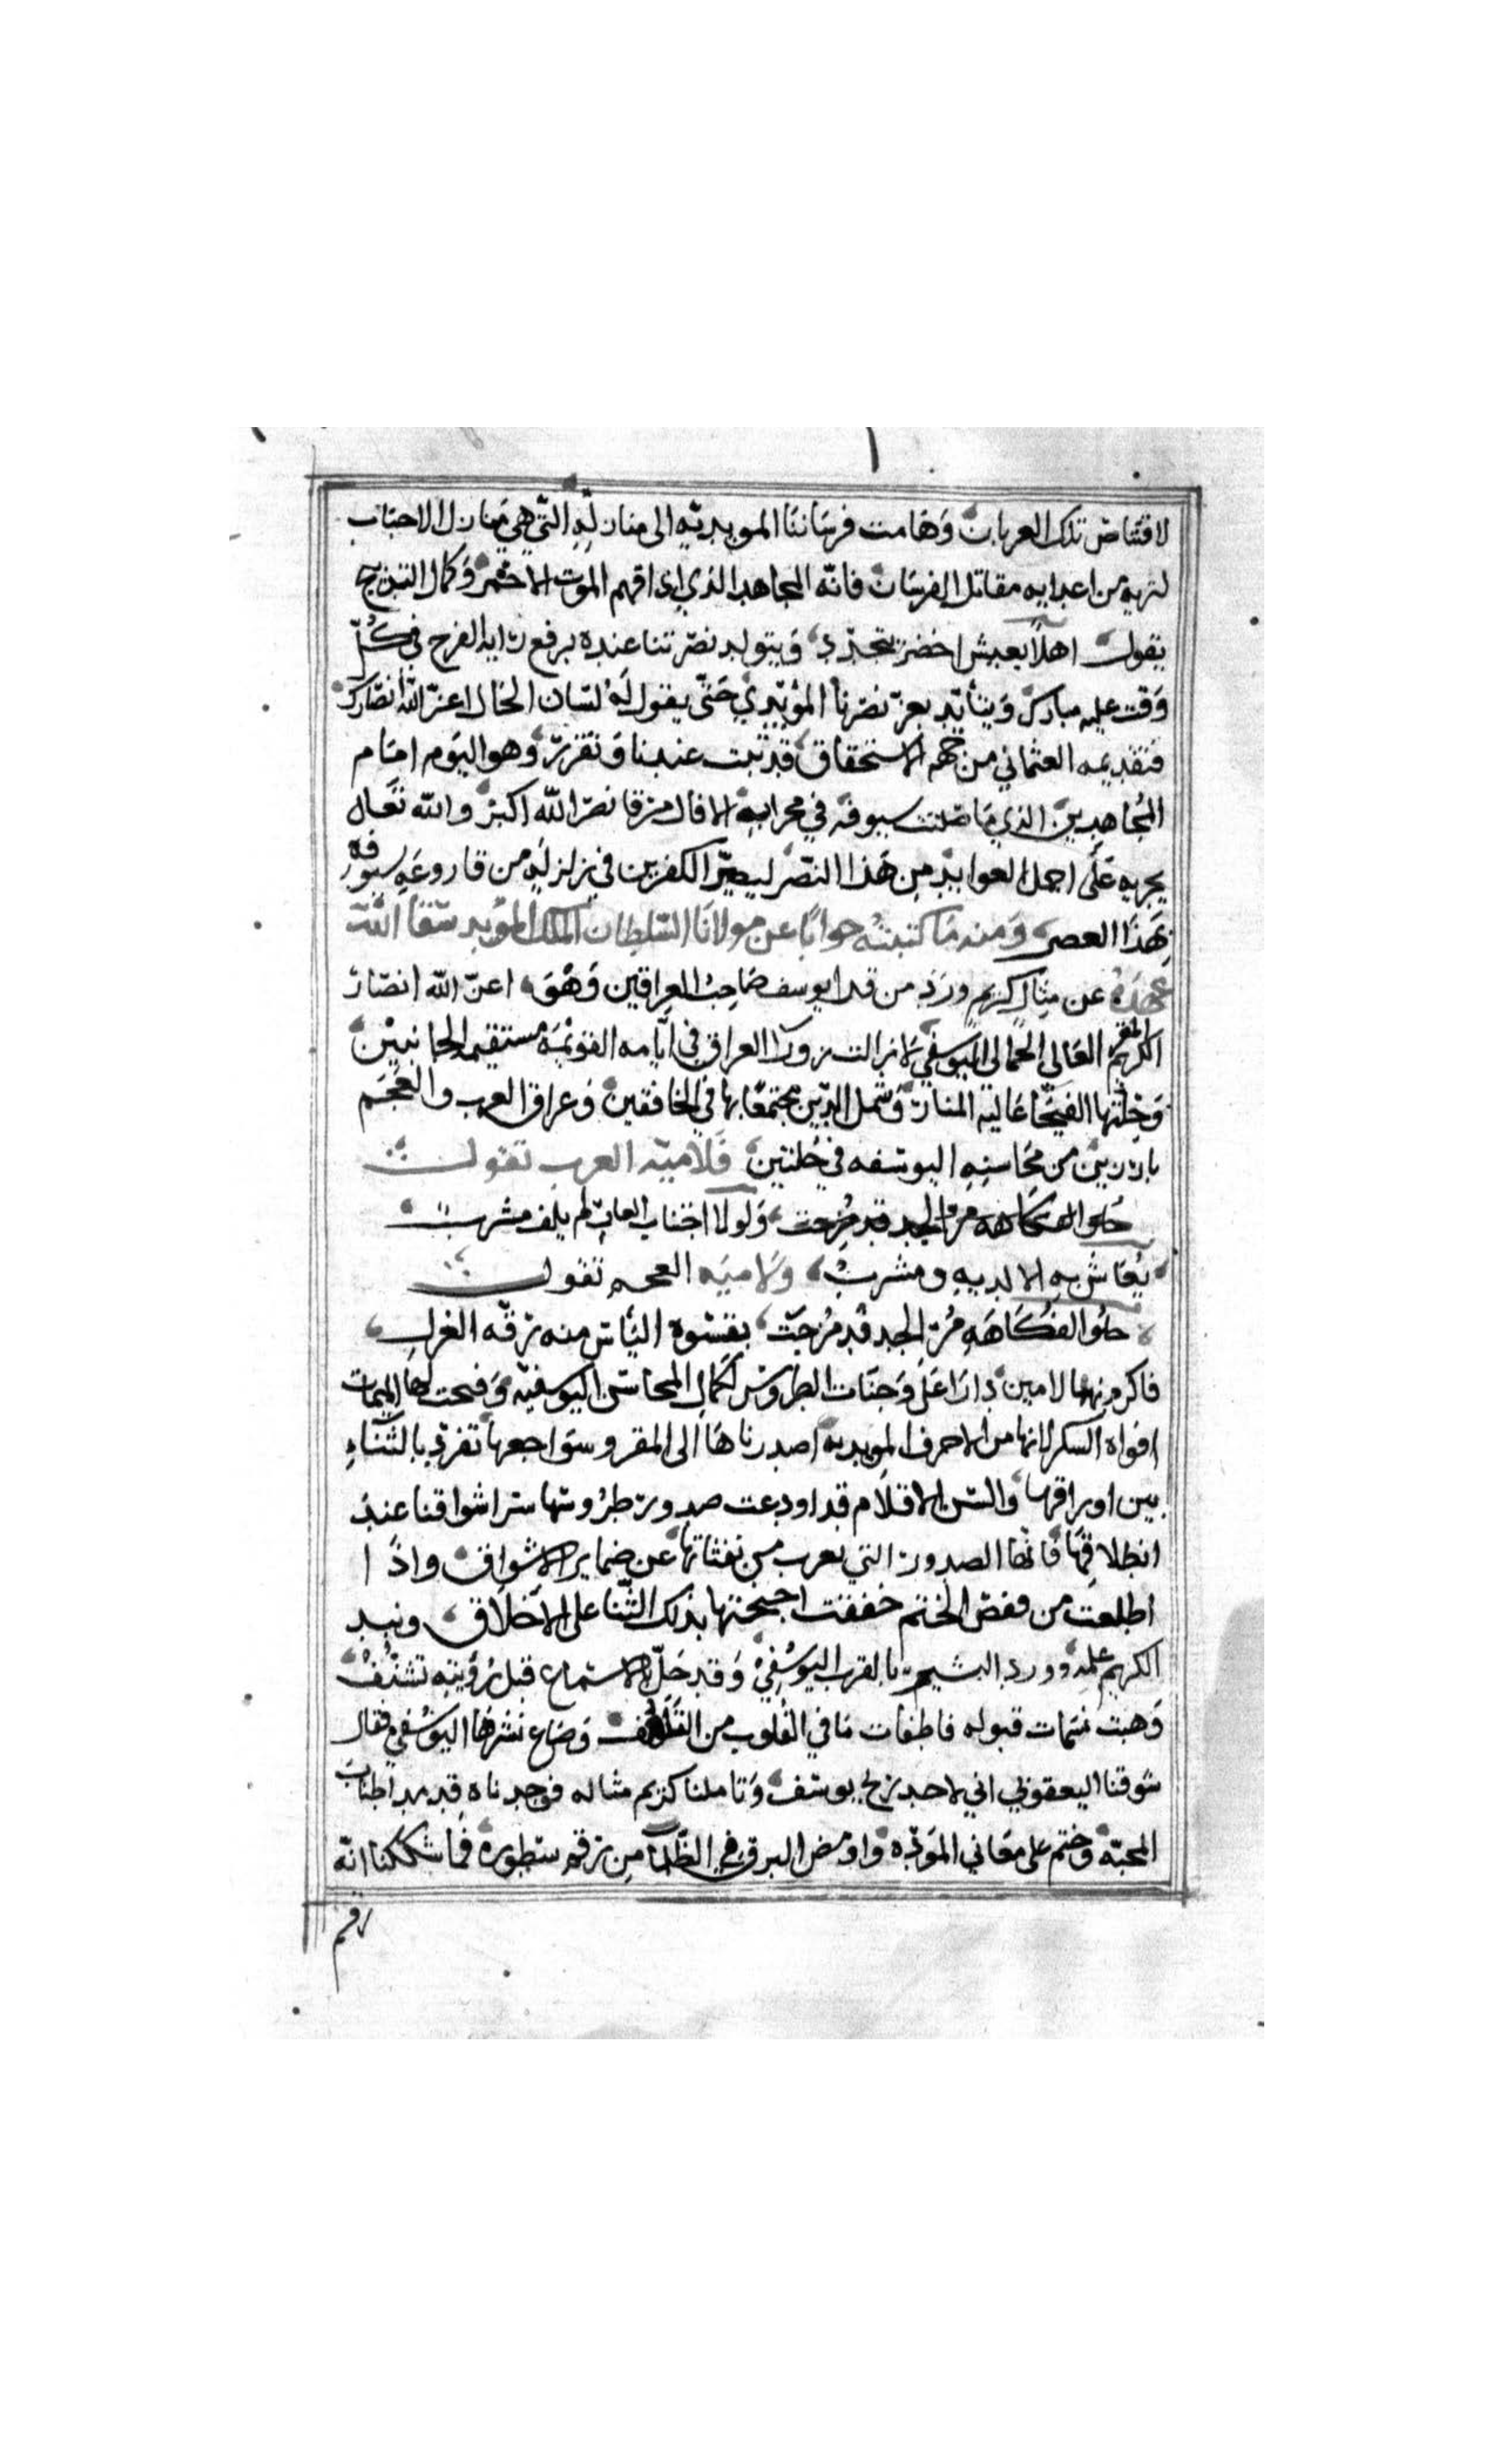 لاقتناص تلك العربان وهامت فرساننا المويديه الى منازله التي هي منازل الاحباب
لتريه من اعدايه مقاتل الفرسان فانه المجاهد الذي اذاقهم الموت الاحمر وكمال التبريج
يقول اهلا بعيش اخضر يتجدد ويتولد نصرتنا عنده برفع راية الفرح في كل
وقت عليه مبارك ويتايد بعز نصرنا المؤيدي حتى يقول له لسان الحال اعز الله انصارك
فتقديمه العثماني من جهه الاستحقاق قد ثبت عندنا وتقرر وهو اليوم امام
المجاهدين الذي ما صلت سيوفه في محرابه الا قال مرقا نصر الله اكبر والله تعالى
يجريه على اجمل العوايد من هذا النصر ليصير الكفرين في زلزله من قارعه سيوفه
بهذا العصر ومنه ما كتبته جوابا عن مولانا السلطان الملك المؤيد سقا الله
عهده عن مثال كريم ورد من قرا يوسف صاحب العراقين وهو اعز الله انصار
المقر الكريم العالي الجمالي اليوسفي لا زالت زورا العراق في ايامه القويمه مستقيمه الجانبين
وحلتها الفيحا عاليه المنار وشمل الدين مجتمعا بها في الخافقين وعراق العرب والعجم
بارزين من محاسنه اليوسفه في حلتين فلاميه العرب تقول
حلو الفكاهه مر الجد قد مزجت ولولا اجتناب العاب لم يلف مشرب
يعاش به الا لديه ومشرب ولاميه العجم تقول
حلو الفكاهه مر الجد قد مزجت بقسوة الباس منه رقه الغزل
فاكرم بهما لامين دارا على وجنات الطروس لكمال المحاسن اليوسفيه وفتحت لها الميمات
افواه السكر لانها من الاحرف المويديه اصدرناها الى المقر وسواجعها تغرد بالثناء
بين اوراقها والسن الاقلام قد اودعت صدور طروسها سر اشواقنا عند
انطلاقها فانها الصدور التي يعرب من نفثاتها عن ضماير الاشواق واذا
اطلعت من قفص الختم خفقت اجنحتها بذلك الثنا على الاخلاق ونبد
الكريم علمه ورد البشير بالقرب اليوسفي وقد حل الاسماع قبل رؤيته تشنف
وهبت نسمات قبوله فاطفات ما في القلوب من التلهف وضاع نشرها اليوسفي فقال
شوقنا اليعقوبي اني لاجد ريح يوسف وتاملنا كريم مثاله فوجدناه قد مد اطناب
المحبة وختم على معاني المودة واومض البرق في الظلما من رقم سطوره فما شككنا انه
رقم